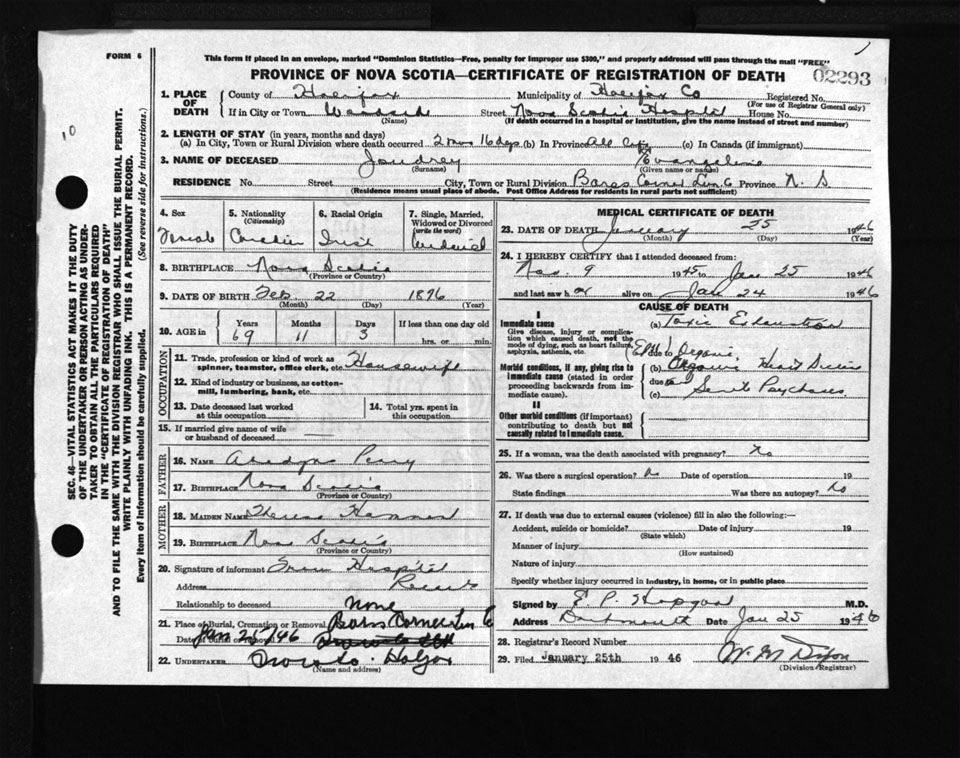 FORM 6
This form if placed in an envelope, marked "Dominion Statistics—Free, penalty for improper use $300," and properly addressed will pass through the mail "FREE"
PROVINCE OF NOVA SCOTIA—CERTIFICATE OF REGISTRATION OF DEATH
02293
1. PLACE OF DEATH
County of Halifax Municipality of Halifax Co Registered No.
(For use of Registrar General only)
If in City or Town Street Nova Scotia Hospital House No.
(Name) (If death occurred in a hospital or institution, give the name instead of street and number)
2. LENGTH OF STAY (in years, months and days)
(a) In City, Town or Rural Division where death occurred 2 mos 16 dys (b) In Province All Life (c) In Canada (if immigrant)
3. NAME OF DECEASED Joudrey Evangeline
(Surname) (Given name or names)
RESIDENCE No. Street City, Town or Rural Division Barss Corner Lun. Co Province N. S
(Residence means usual place of abode. Post Office Address for residents in rural parts not sufficient)
4. Sex Female
5. Nationality (Citizenship) Canadian
6. Racial Origin
7. Single, Married, Widowed or Divorced (write the word)
8. BIRTHPLACE Nova Scotia
(Province or Country)
9. DATE OF BIRTH Feb. 22 1876
(Month) (Day) (Year)
10. AGE in Years Months Days If less than one day old
69 11 3 hrs. or min.
OCCUPATION
11. Trade, profession or kind of work as spinner, teamster, office clerk, etc Housewife
12. Kind of industry or business, as cotton-mill, lumbering, bank, etc.
13. Date deceased last worked at this occupation
14. Total yrs. spent in this occupation
15. If married give name of wife or husband of deceased
FATHER
16. NAME Perry
17. BIRTHPLACE Nova Scotia
(Province or Country)
MOTHER
18. MAIDEN NAME Theresa
19. BIRTHPLACE Nova Scotia
(Province or Country)
20. Signature of informant From Hospital
Address Records
Relationship to deceased None
21. Place of Burial, Cremation or Removal Barss Corner Lun Co
Date of Burial or Removal Jan 25/46
22. UNDERTAKER
(Name and address)
MEDICAL CERTIFICATE OF DEATH
23. DATE OF DEATH January 25 1946
(Month) (Day) (Year)
24. I HEREBY CERTIFY that I attended deceased from:
Nov. 9 1945 to Jan 25 1946
and last saw h er alive on Jan 24 1946
CAUSE OF DEATH
I
Immediate cause (a) Toxic Exhaustion
Give disease, injury or complication which caused death, not the mode of dying, such as heart failure, asphyxia, asthenia, etc.
due to
Morbid conditions, if any, giving rise to immediate cause (stated in order proceeding backwards from immediate cause).
(b) Organic Heart Disease
due to
(c) Senile Psychoses
II
Other morbid conditions (if important) contributing to death but not causally related to immediate cause.
25. If a woman, was the death associated with pregnancy? No
26. Was there a surgical operation? No Date of operation 19
State findings Was there an autopsy? No
27. If death was due to external causes (violence) fill in also the following:—
Accident, suicide or homicide? Date of injury 19
(State which)
Manner of injury
(How sustained)
Nature of injury
Specify whether injury occurred in industry, in home, or in public place
Signed by E P M.D.
Address Dartmouth Date Jan 25 1946
28. Registrar's Record Number
29. Filed January 25th 1946
(Division Registrar)
SEC. 46—VITAL STATISTICS ACT MAKES IT THE DUTY OF THE UNDERTAKER OR PERSON ACTING AS UNDERTAKER TO OBTAIN ALL THE PARTICULARS REQUIRED IN THE "CERTIFICATE OF REGISTRATION OF DEATH" AND TO FILE THE SAME WITH THE DIVISION REGISTRAR WHO SHALL ISSUE THE BURIAL PERMIT.
WRITE PLAINLY WITH UNFADING INK. THIS IS A PERMANENT RECORD.
Every item of Information should be carefully supplied. (See reverse side for instructions.)